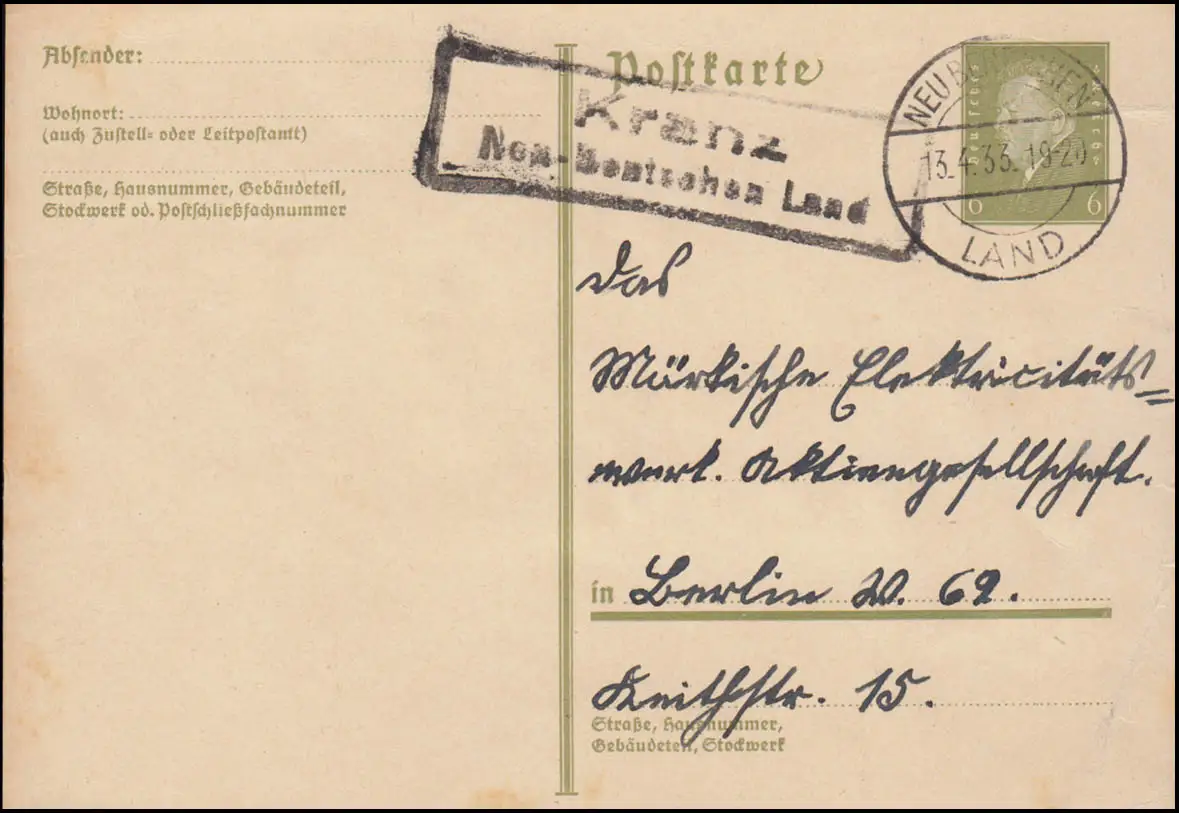 Absender:
Wohnort:
(auch Zustell- oder Leitpostamt)
Straße, Hausnummer, Gebäudeteil,
Stockwerk od. Postschließfachnummer
Postkarte
Kranz
Neu-Bentschen Land
NEU BENTSCHEN
13.4.33.18-20
LAND
6 6
Das
Märkische Elektricitäts=
werk. Aktiengesellschaft.
in Berlin W. 62.
Keithstr. 15.
Straße, Hausnummer,
Gebäudeteil, Stockwerk